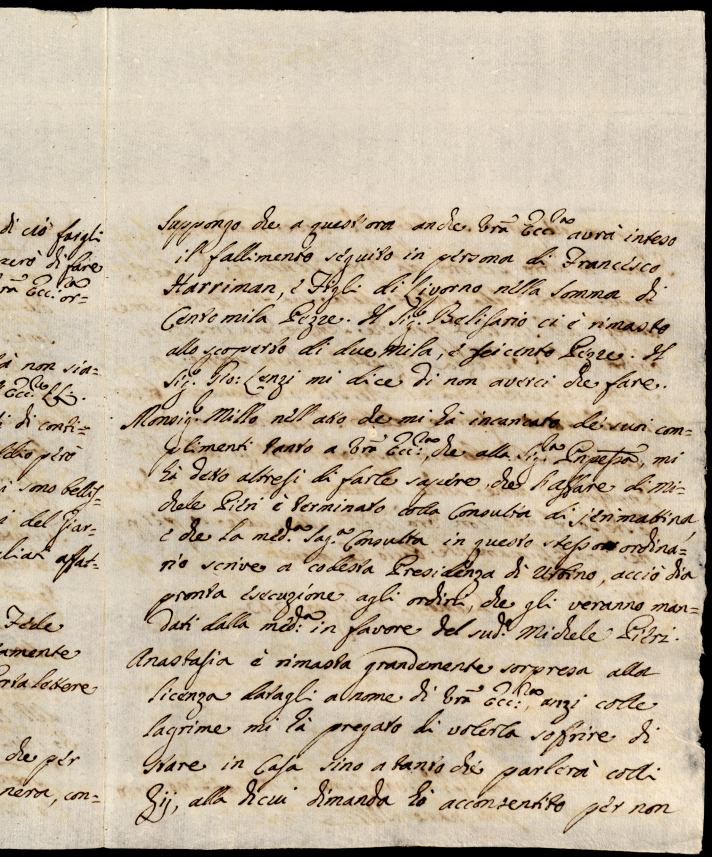 di ciò fargli
di fare
Vrã Ecc.ª or=
non sia=
Ecc.ª
di conti=
però
sono bellis=
del Giar=
affat=
Fede
amente
Porta lettere
che per
nera, con=
Suppongo che a quest'ora anche Vrã Ecc.ª avrà inteso
il fallimento seguito in persona di Francesco
Harriman, e Figli di Livorno nella Somma di
Centomila Pezze. Il Sig.r Belisario ci è rimasto
allo scoperto di due mila, e seicento Pezze. Il
Sig.r Gio: Lenzi mi dice di non averci che fare.
Monsig.r Millo nell'atto che mi hà incaricato de' suoi com=
plimenti tanto a Vrã Ecc.ª, che alla Sig.ra Pnpessa, mi
hà detto altresì di farle sapere, che l'affare di Mi=
chele Pitri è terminato colla Consulta di jerimattina,
e che la med.ª Sag.ª Consulta in questo stesso ordina=
rio scrive a codesta Presidenza di Urbino, acciò dia
pronta esecuzione agli ordini, che gli veranno man=
dati dalla med.ª in favore del sud.º Michele Pitri.
Anastasia è rimasta grandemente sorpresa alla
licenza datagli a nome di Vrã Ecc.ª, anzi colle
lagrime mi hà pregato di volerla soffrire di
stare in Casa sino a tanto che parlerà colli
Zij, alla di cui dimanda hò acconsentito per non